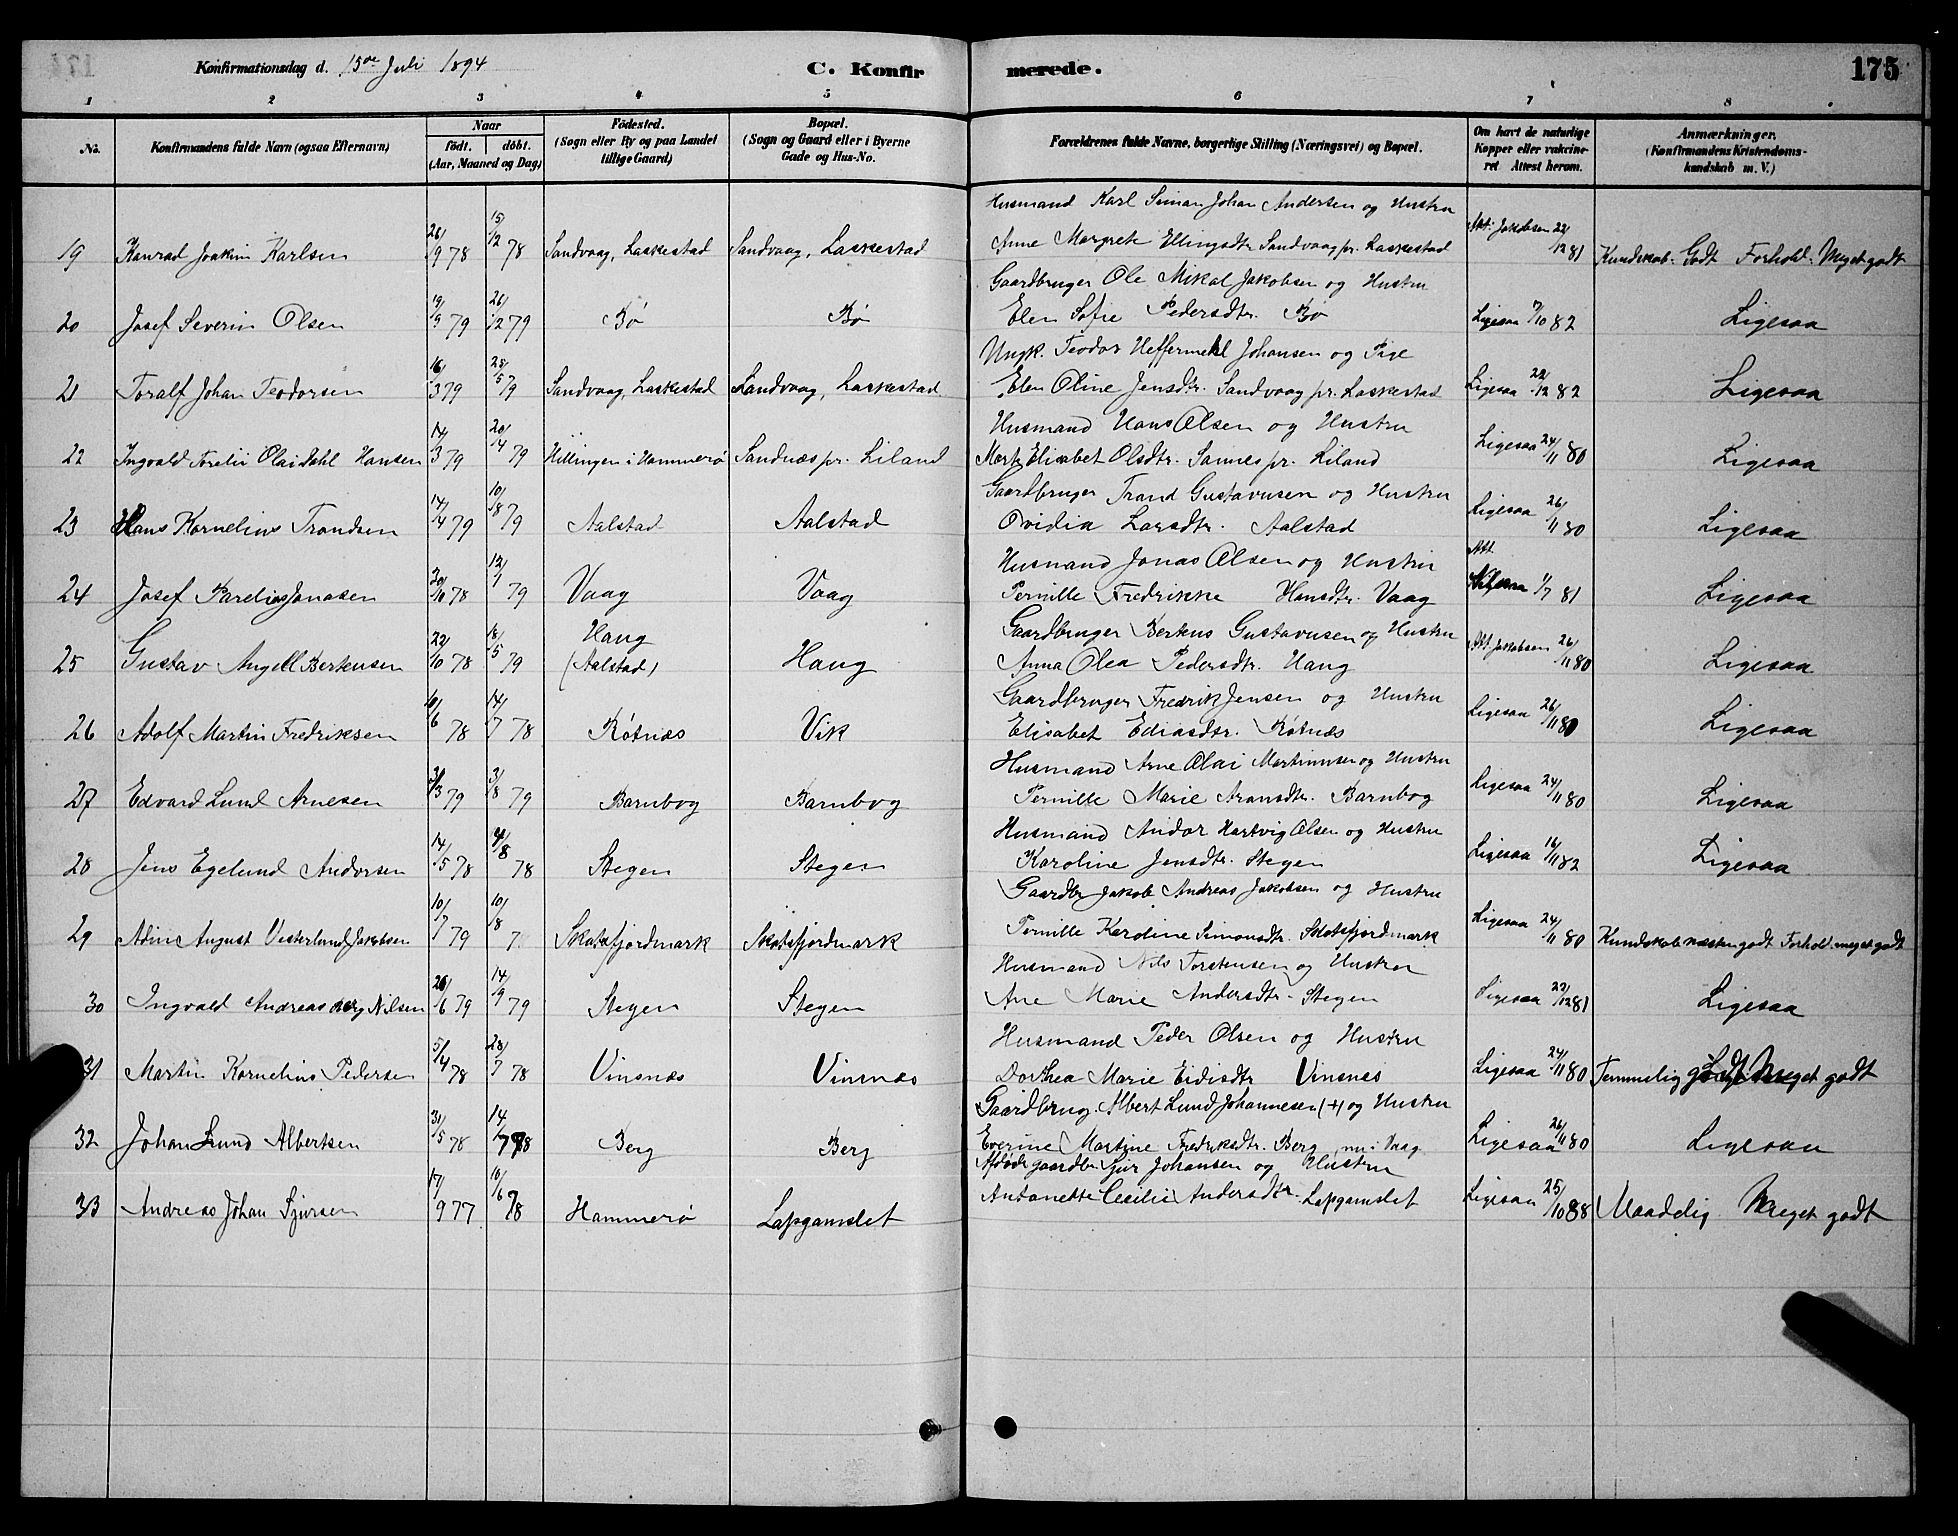 Konfirmationsdag d. 15de Juli 1894 C. Konfirmerede. 175
1 2 3 4 5 6 7 8
No. Konfirmandens fulde Navn (ogsaa Efternavn) Naar födt. döbt. (Aar, Maaned og Dag) Födested. (Sogn eller By og paa Landet tillige Gaard) Bopæl. (Sogn og Gaard eller i Byerne Gade og Hus-No. Forældrenes fulde Navne, borgerlige Stilling (Næringsvei) og Bopæl. Om havt de naturlige Kopper eller vakcineret. Attest herom. Anmærkninger. (Konfirmandens Kristendomskundskab m. V.)
Husmand Karl Simon Johan Andersen og Hustru
19 Konrad Joakim Karlsen 26/9 78 15/12 78 Sandvaag, Laskestad Sandvaag, Laskestad Anne Margrete Ellingsdtr Sandvaag pr. Laskestad Att: Jakobsen 22/12 81 Kundskab. Godt Forhold. Meget godt
Gaardbruger Ole Mikal Jakobsen og Hustru
20 Josef Severin Olsen 19/9 79 26/12 79 Bø Bø Elen Sofie Pedersdtr. Bø Ligesaa 7/10 82 Ligesaa
Ungk. Teodor Heffermehl Johansen og Pige
21 Toralf Johan Teodorsen 16/3 79 28/5 79 Sandvaag, Laskestad Sandvaag, Laskestad Elen Oline Jensdtr. Sandvaag pr. Laskestad Ligesaa 22/12 82 Ligesaa
Husmand Hans Olsen og Hustru
22 Ingvald Torelii Olai Dahl Hansen 14/3 79 20/4 79 Hillingen i Hammerø Sandnæs pr. Liland Mart. Elisabet Olsdtr. Sannes pr. Liland Ligesaa 24/11 80 Ligesaa
Gaardbruger Trand Gustavusen og Hustru
23 Hans Kornelius Trondsen 14/4 79 10/8 79 Aalstad Aalstad Ovidia Larsdtr. Aalstad Ligesaa 26/11 80 Ligesaa
Husmand Jonas Olsen og Hustru Att
24 Josef Parelius Jonasen 30/10 78 12/1 79 Vaag Vaag Pernille Fredrikke Hansdtr. Vaag 1/7 81 Ligesaa
Haug Gaardbruger Berteus Gustavusen og Hustru
25 Gustav Angell Berteusen 22/10 78 18/5 79 (Aalstad) Haug Anna Olea Pedersdtr. Haug Att Jakobsen 26/11 80 Ligesaa
Gaardbruger Fredrik Jensen og Hustru
26 Adolf Martin Fredriksen 10/6 78 14/7 78 Røtnæs Vik Elisabet Ediasdtr. Røtnæs Ligesaa 26/11 80 Ligesaa
Husmand Arne Olai Martinusen og Hustru
27 Edvard Lund Arnesen 31/3 79 3/8 79 Barnbog Barnbog Pernille Marie Aronsdtr. Barnbog Ligesaa 24/11 80 Ligesaa
Husmand Andor Hartvig Olsen og Hustru
28 Jens Egelund Andorsen 14/5 78 4/8 78 Stegen Stegen Karoline Jensdtr. Stegen Ligesaa 16/11 82 Ligesaa
Gaardbr Jakob Andreas Jakobsen og Hustru
29 Adin August Vesterlund Jakobsen 10/7 79 10/8 7 Skotsfjordmark Skotsfjordmark Pernille Karoline Simonsdtr. Skotsfjordmark Ligesaa 24/11 80 Kundskab næsten godt Forhold. meget godt
Husmand Nils Torstensen og Hustru
30 Ingvald Andreas Nilsen 26/6 79 14/9 79 Stegen Stegen Ane Marie Andersdtr. Stegen Ligesaa 22/12 81 Ligesaa
Husmand Peder Olsen og Hustru
31 Martin Kornelius Pedersen 5/4 78 28/7 78 Vinsnæs Vinsnæs Dorthea Marie Eidisdtr Vinsnes Ligesaa 24/11 80 Temmelig godt Meget godt
Gaardbrug. Albert Lund Johannesen (+) og Hustru
32 Johan Lund Albertsen 31/5 78 14/7 78 Berg Berg Everine Martine Fredriksdtr. Berg, nu i Vaag Ligesaa 26/11 80 Ligesaa
Afdøde gaardbr Sjur Johansen og Hustru
33 Andreas Johan Sjursen 17/9 77 10/6 78 Hammerø Lapgamslet Antonette Cecilie Andersdtr. Lapgamslet Ligesaa 25/10 88 Maadelig Meget godt